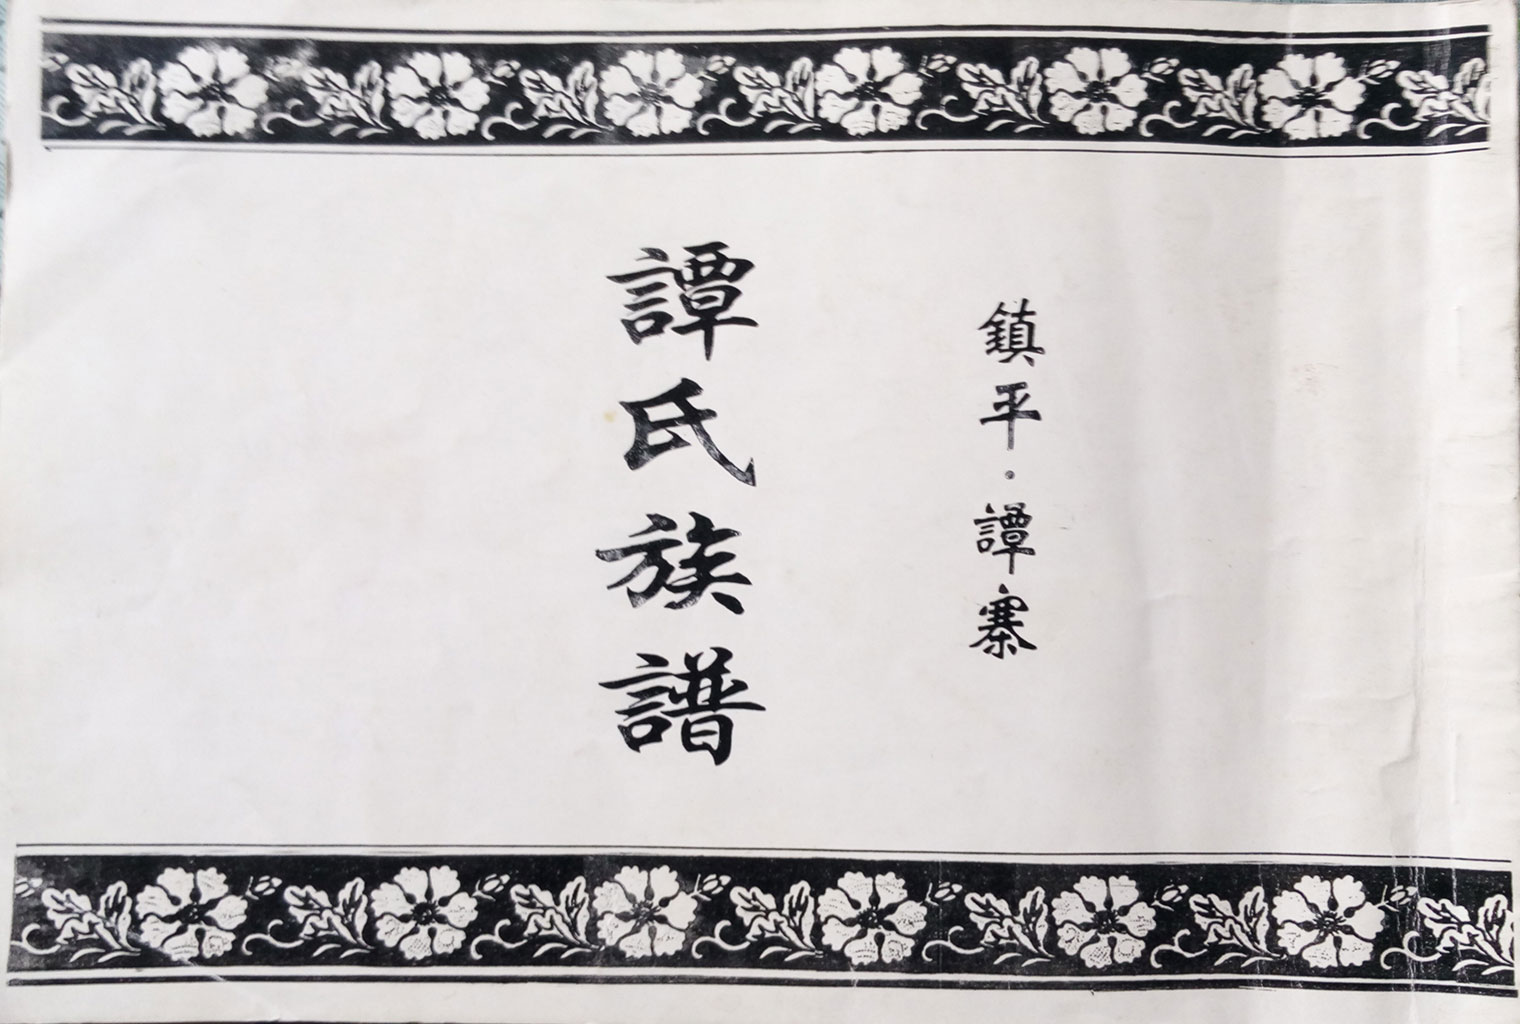 鎮平·譚寨
譚氏族譜